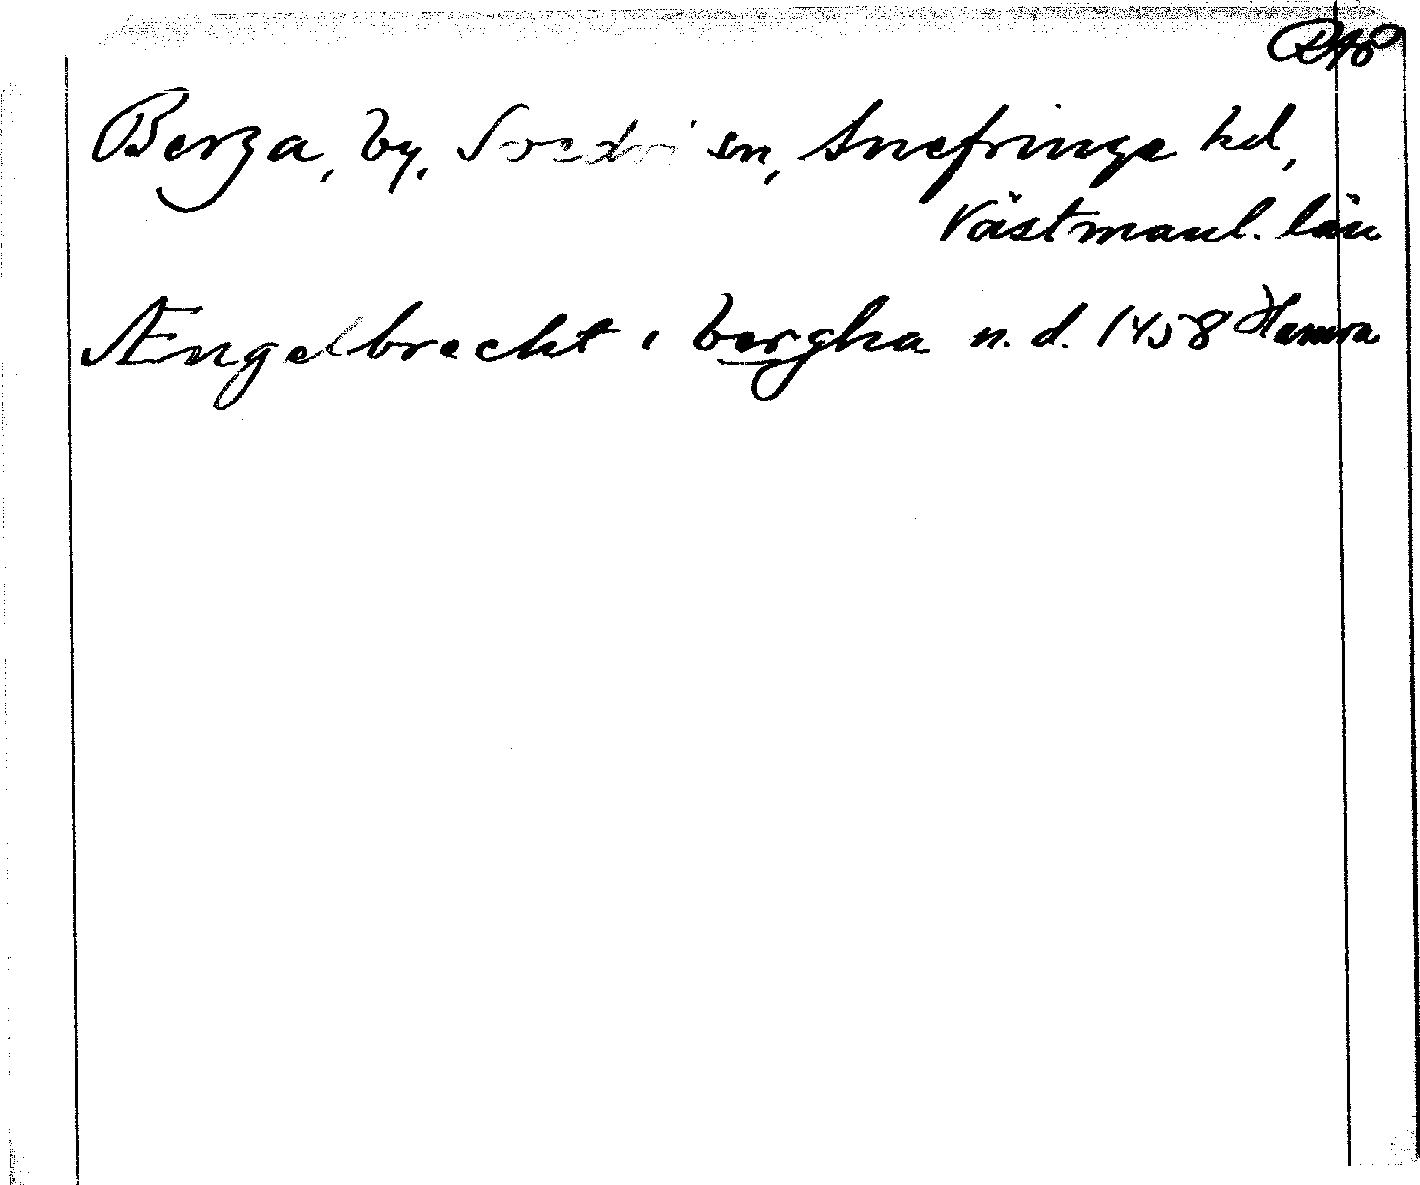 Berga, by, Svedvi sn, Snefringe hd,
Västmanl. län
Ængelbrecht i bergha n. d. 1458